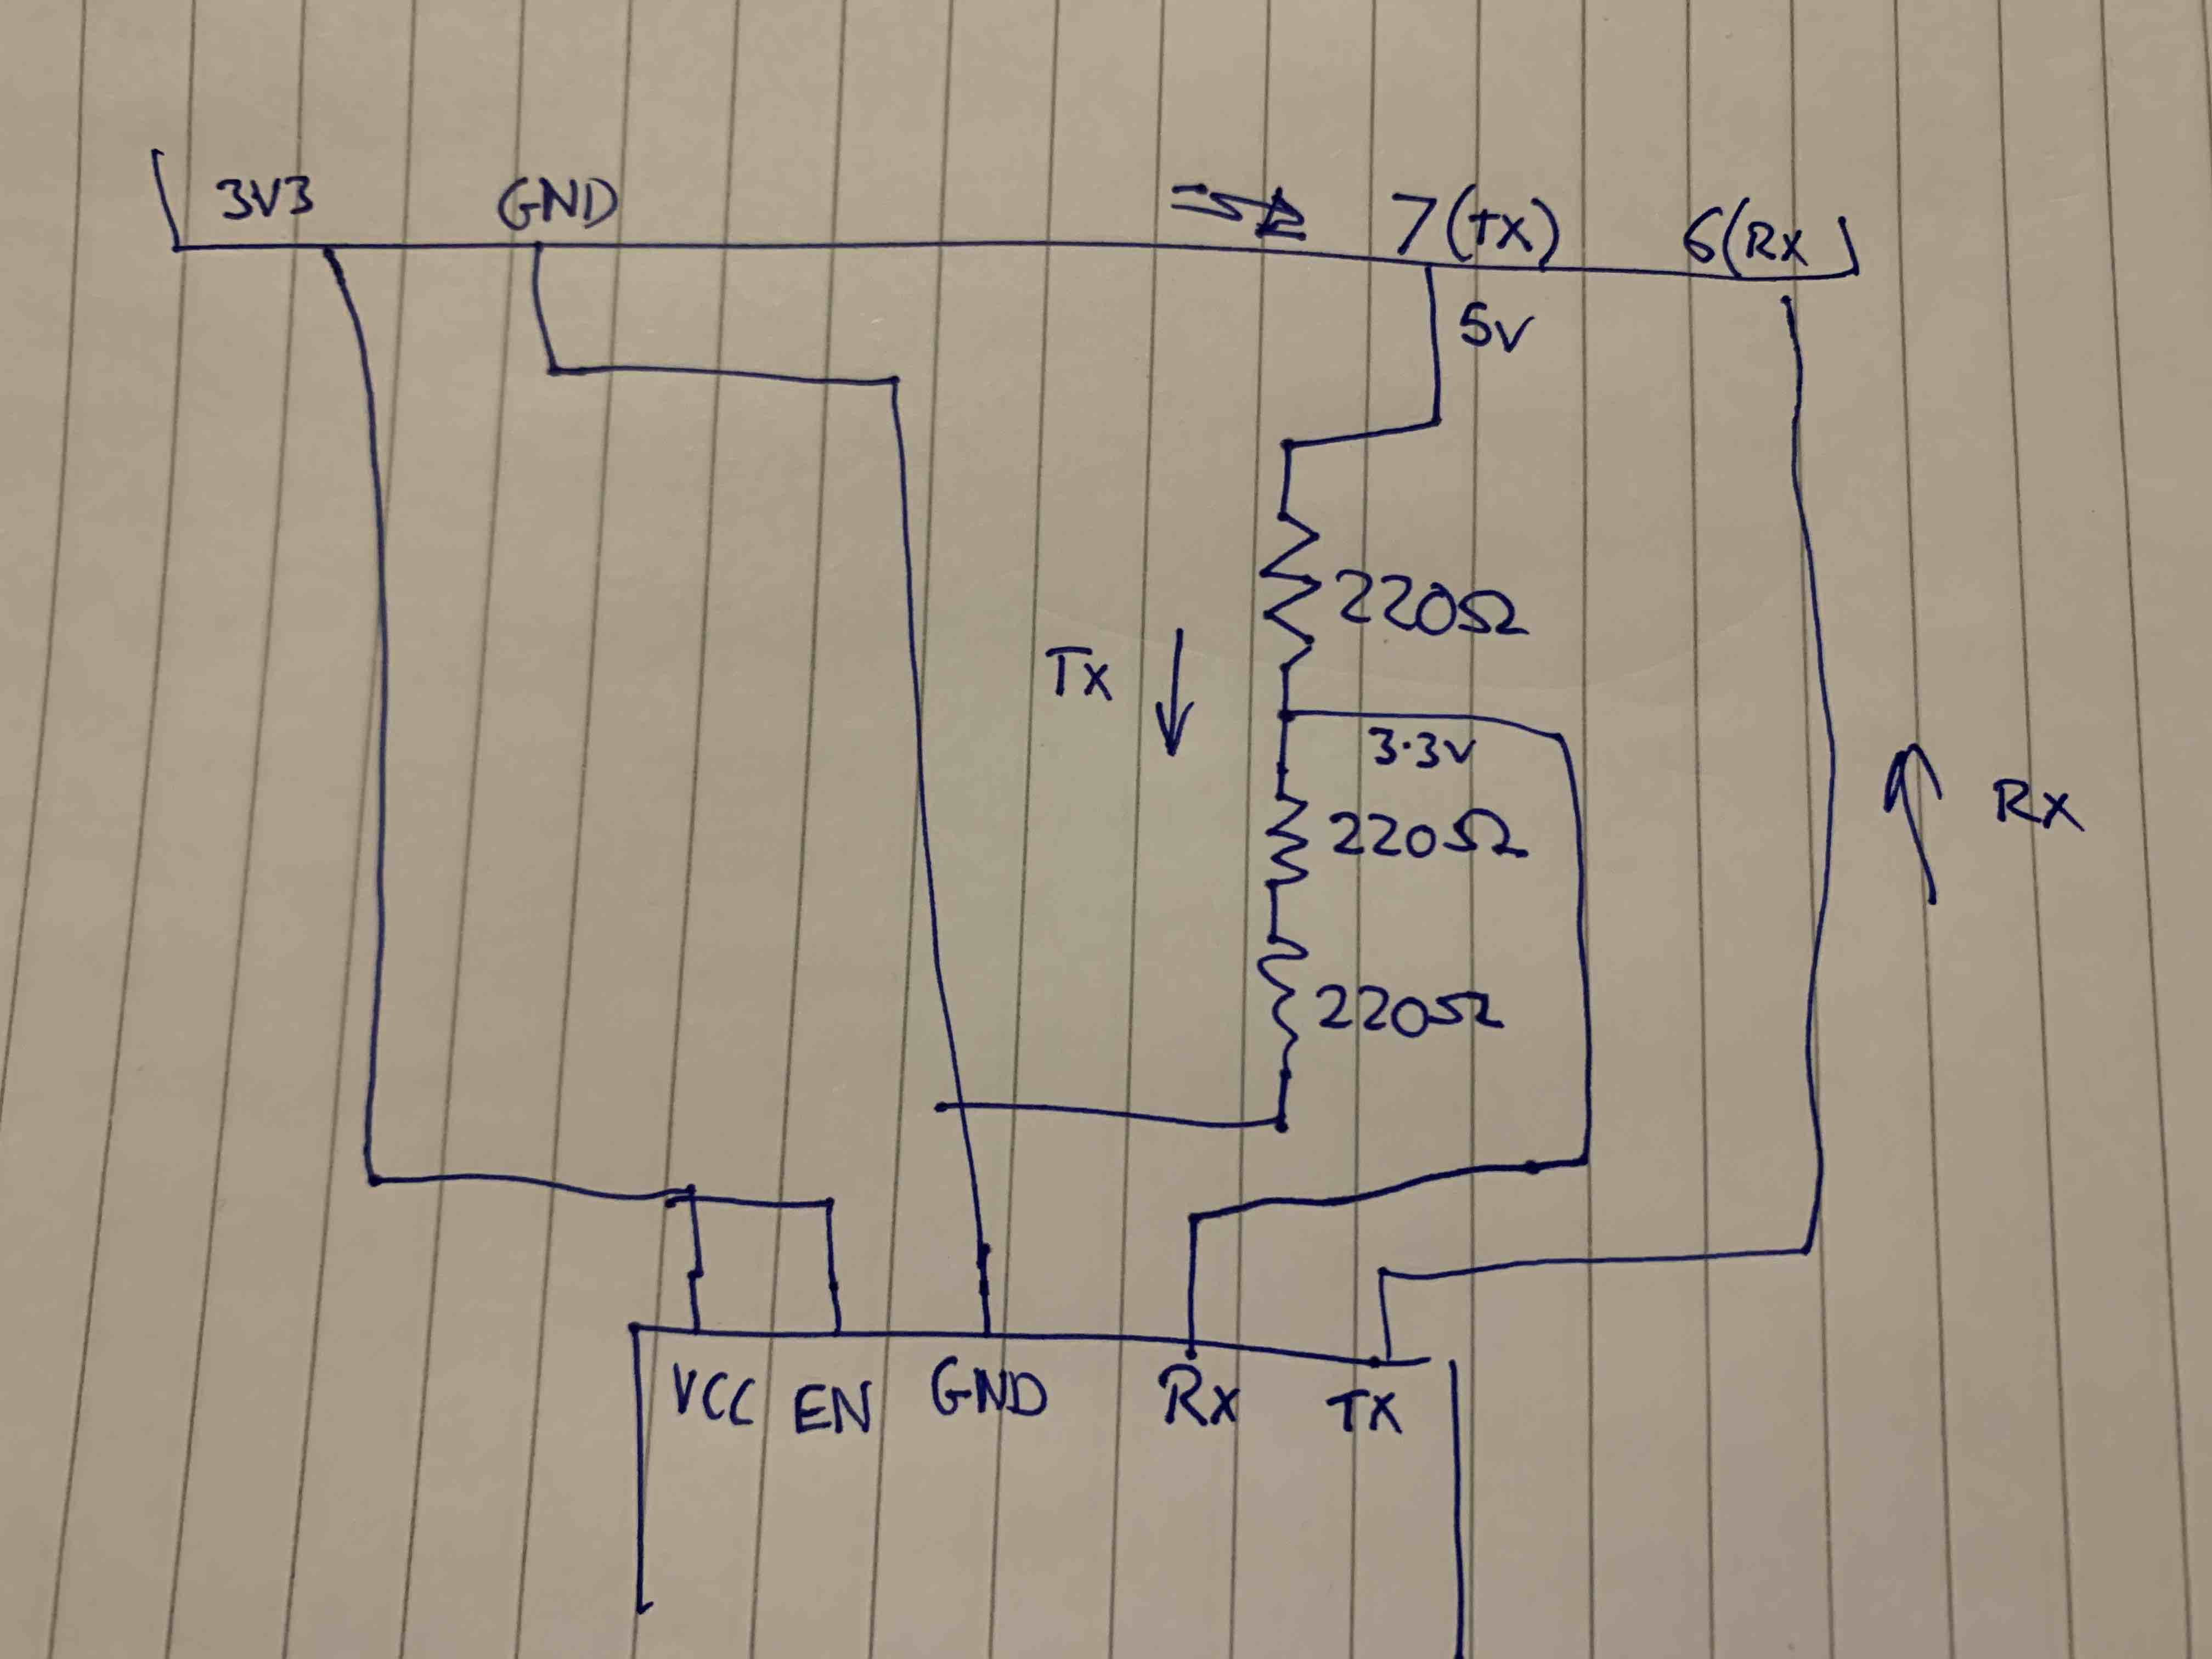 3V3 GND 7(TX) 6(Rx
5V
220Ω
Tx
3.3V
220Ω
Rx
220Ω
VCC EN GND Rx TX